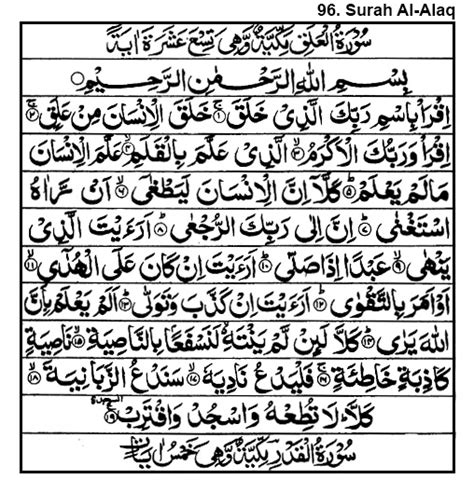 96. Surah Al-Alaq
سُوْرَةُ الْعَلَقِ مَكِّيَّةٌ وَّهِيَ تِسْعَ عَشْرَةَ اٰيَةً
بِسْمِ اللهِ الرَّحْمٰنِ الرَّحِيْمِ
اِقْرَاْ بِاسْمِ رَبِّكَ الَّذِيْ خَلَقَ ۚ﴿۱﴾ خَلَقَ الْاِنْسَانَ مِنْ عَلَقٍ ۚ﴿۲﴾
اِقْرَاْ وَرَبُّكَ الْاَكْرَمُ ۙ﴿۳﴾ الَّذِيْ عَلَّمَ بِالْقَلَمِ ۙ﴿۴﴾ عَلَّمَ الْاِنْسَانَ
مَا لَمْ يَعْلَمْ ؕ﴿۵﴾ كَلَّاۤ اِنَّ الْاِنْسَانَ لَيَطْغٰۤى ۙ﴿۶﴾ اَنْ رَّاٰهُ
اسْتَغْنٰى ؕ﴿۷﴾ اِنَّ اِلٰى رَبِّكَ الرُّجْعٰى ؕ﴿۸﴾ اَرَءَيْتَ الَّذِيْ
يَنْهٰى ۙ﴿۹﴾ عَبْدًا اِذَا صَلّٰى ؕ﴿۱۰﴾ اَرَءَيْتَ اِنْ كَانَ عَلَى الْهُدٰۤى ۙ﴿۱۱﴾
اَوْ اَمَرَ بِالتَّقْوٰى ؕ﴿۱۲﴾ اَرَءَيْتَ اِنْ كَذَّبَ وَتَوَلّٰى ؕ﴿۱۳﴾ اَلَمْ يَعْلَمْ بِاَنَّ
اللهَ يَرٰى ؕ﴿۱۴﴾ كَلَّا لَئِنْ لَّمْ يَنْتَهِ ۙ لَنَسْفَعًۢا بِالنَّاصِيَةِ ۙ﴿۱۵﴾ نَاصِيَةٍ
كَاذِبَةٍ خَاطِئَةٍ ۚ﴿۱۶﴾ فَلْيَدْعُ نَادِيَهٗ ۙ﴿۱۷﴾ سَنَدْعُ الزَّبَانِيَةَ ۙ﴿۱۸﴾
كَلَّا ؕ لَا تُطِعْهُ وَاسْجُدْ وَاقْتَرِبْ ﴿۱۹﴾ السجدة
سُوْرَةُ الْقَدْرِ مَكِّيَّةٌ وَّهِيَ خَمْسُ اٰيَاتٍ